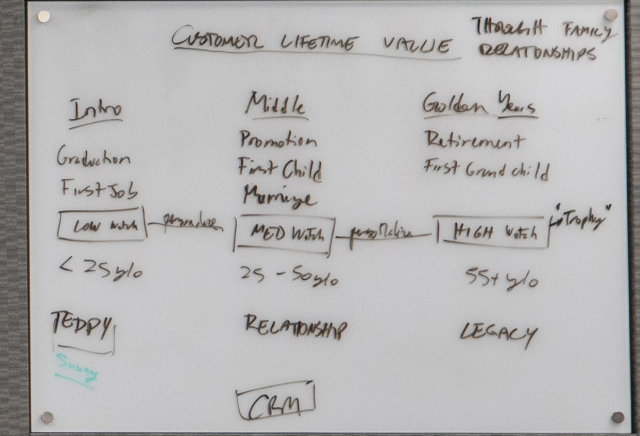 CUSTOMER LIFETIME VALUE
THROUGH FAMILY
RELATIONSHIPS
Intro
Graduation
First Job
LOW Watch
personalize
< 25 y/o
TEDDY
Middle
Promotion
First Child
Marriage
MED Watch
personalize
25 - 50 y/o
RELATIONSHIP
CRM
Golden Years
Retirement
First Grandchild
HIGH Watch
"Trophy"
55+ y/o
LEGACY